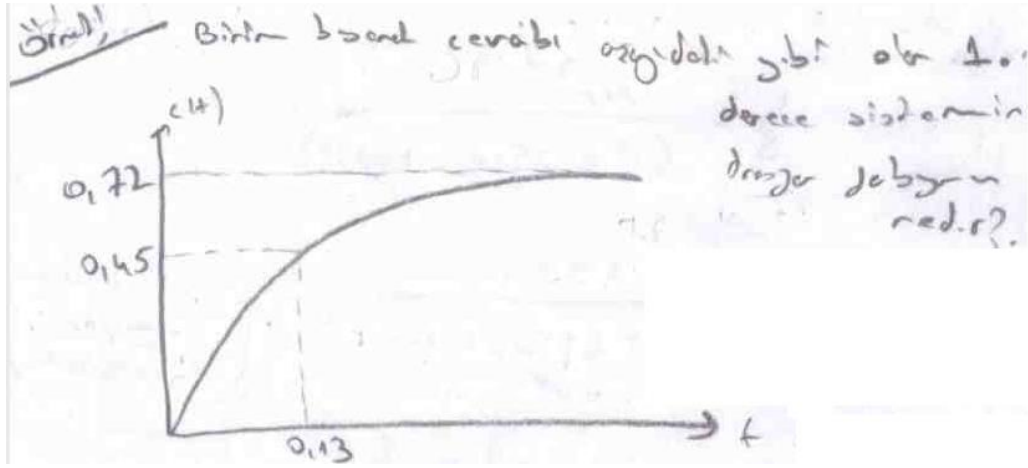 Örnek; Birim basamak cevabı aşağıdaki gibi olan 1.
derece sistemin
transfer fonksiyonu
nedir?.
c(t)
0,72
0,45
0,13
t